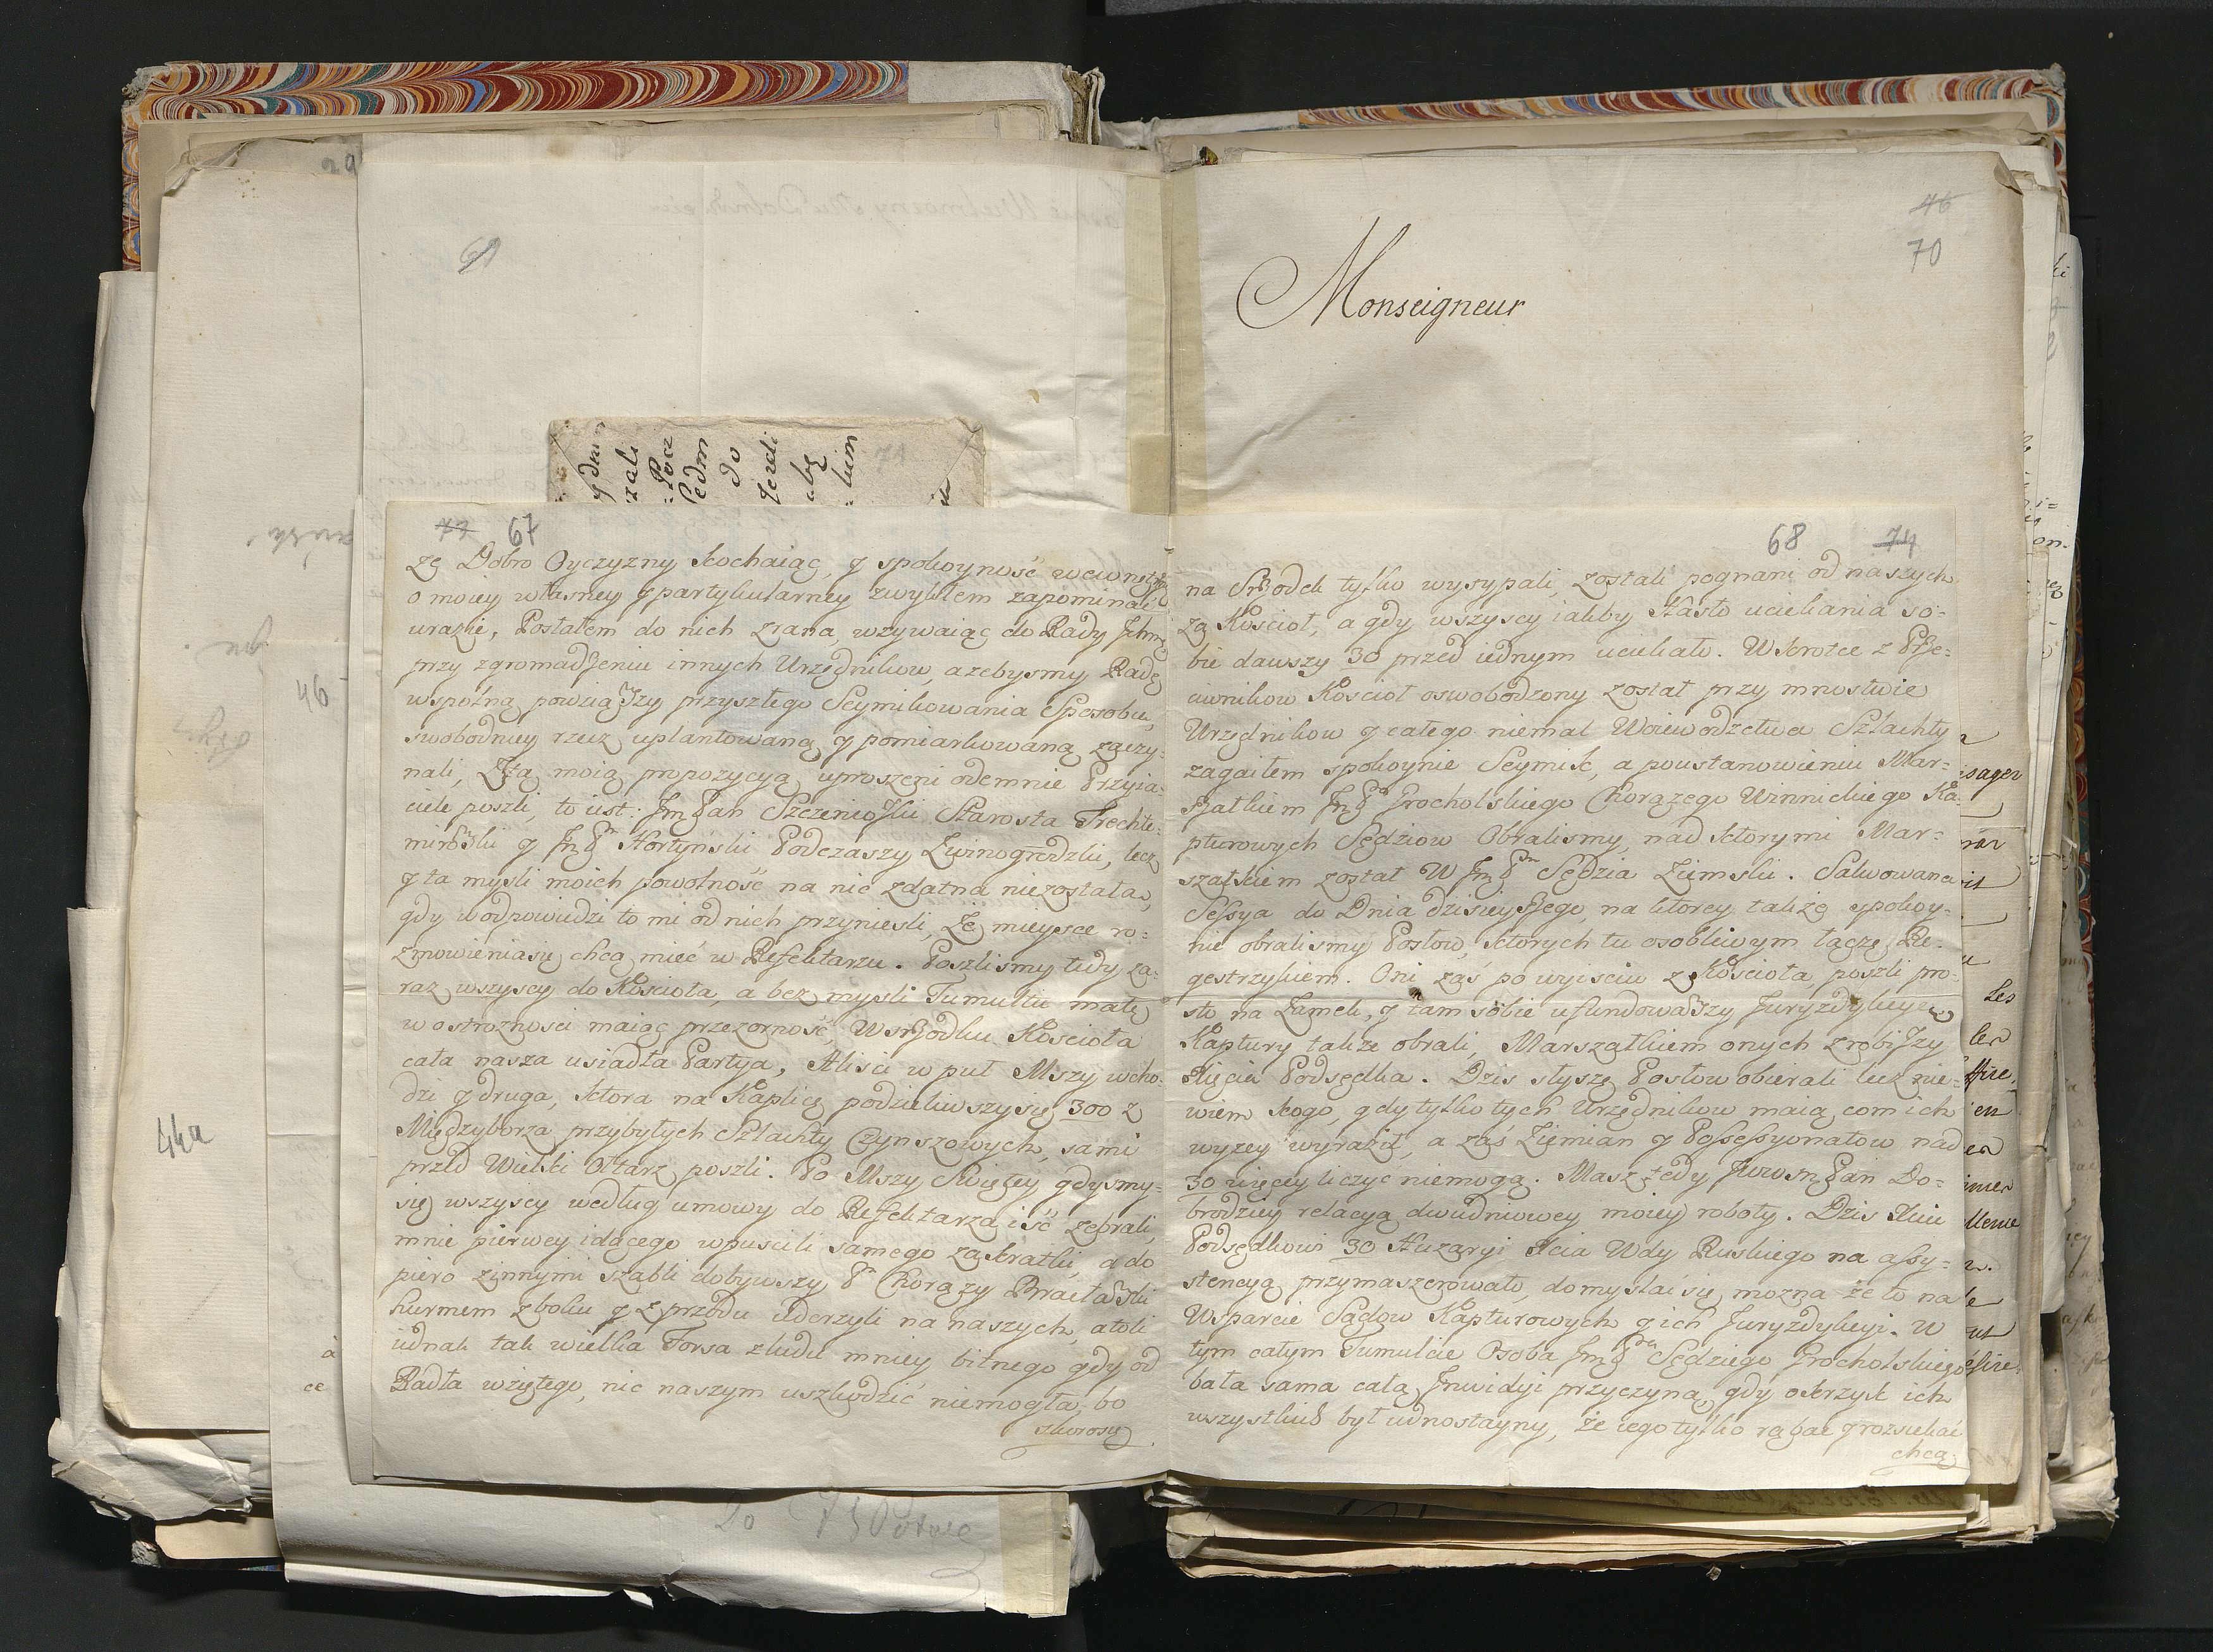 69
46
70
Monseigneur
73 67
zę Dobro Oyczyzny kochaiąc, y spokoyność wewnętrzną
o moiey własney y partykularney zwykłem zapominać
urazie, Posłałem do nich zrana, wzywaiąc do Rady Ichm
przy zgromadzeniu innych Urzędnikow, azebysmy Radę
wspolną powziąwszy przyszłego Seymikowania Sposobu,
swobodniey rzecz uplantowaną y pomiarkowaną zaczy-
nali, Z tą moią propozycyą uproszeni odemnie Przyia-
ciele poszli, to iest: Jm Pan Szczeniowski Starosta Trechte-
mirowski y Jm Pn Hortyński Podczaszy Zwinogrodzki, lecz
y ta mysli moich powolność na nic zdatna niezostała,
gdy w odpowiedzi to mi od nich przyniesli, Ze mieysce ro-
zmowienia się chcą mieć w Refektarzu. Poszlismy tedy za-
raz wszyscy do Kościoła, a bez mysli Tumultu małą
w ostrożnosci maiąc przezorność, Wsrzodku Kościoła
cała nasza usiadła Partya, Alisci w puł Mszy wcho-
dzi y druga, ktora na Kaplicę podzieliwszy się 300 z
Międzyborza przybyłych Szlachty Czynszowych, sami
przed Wielki Ołtarz poszli. Po Mszy Swiętey, gdysmy-
się wszyscy według umowy do Refektarza iść zebrali,
mnie pierwey idącego wpuscili samego za kratki, a do
piero zinnymi szabli dobywszy Pn Chorązy Bracławski
hurmem z boku y z przodu uderzyli na naszych, atoli
iednak tak wielka Forsa z ludu mniey bitnego gdy od
Radła wziętego, nic naszym uszkodzić niemogła, bo
skoro się
68 74
na Srzodek tylko wysypali, zostali pognani od naszych
za Kościoł, a gdy wszyscy iakby Hasło uciekania so-
bie dawszy 30 przed iednym uciekało. Wkrotce z Prze-
ciwnikow Kościoł oswobodzony został przy mnostwie
Urzędnikow y całego niemal Woiewodztwa Szlachty
zagaiłem spokoynie Seymik, a poustanowieniu Mar-
szałkiem Jm Pa Grocholskiego Chorązego Winnickiego Ka-
pturowych Sędziow Obralismy, nad ktorymi Mar-
szałkiem został W Jm Pn Sędzia Ziemski. Salwowana
Sessya do Dnia dzisieyszego, na ktorey takżę spokoy-
nie obralismy Posłow, ktorych tu osobliwym łączę Re-
gestrzykiem. Oni zaś po wyisciu z Kościoła, poszli pro-
sto na Zamek, y tam sobie ufundowawszy Juryzdykcyę
Kaptury także obrali, Marszałkiem onych zrobiwszy
Xięcia Podsędka. Dzis słyszę Posłow obierali lecz nie-
wiem kogo, gdy tylko tych Urzędnikow maią, com ich
wyzey wyraził, a zaś Ziemian y Possessyonatow nad
30 więcey liczyć niemogą. Masz tedy JwWm Pan Do-
brodziey relacyą dwudniowey moiey roboty. Dzis Xciu
Podsędkowi 30 Huzaryi Xcia Wdy Ruskiego na assy-
stencyą przymaszerowało, domyslać się mozna że to na
Wsparcie Sądow Kapturowych y ich Juryzdykcyi. W
tym całym Tumulcie Osoba Jm Pna Sędziego Grocholskiego
była sama całą Inwidyi przyczyną, gdy okrzyk ich
wszystkich był iednostayny, że iego tylko rąbać y rozsiekać
chcą
46
44a